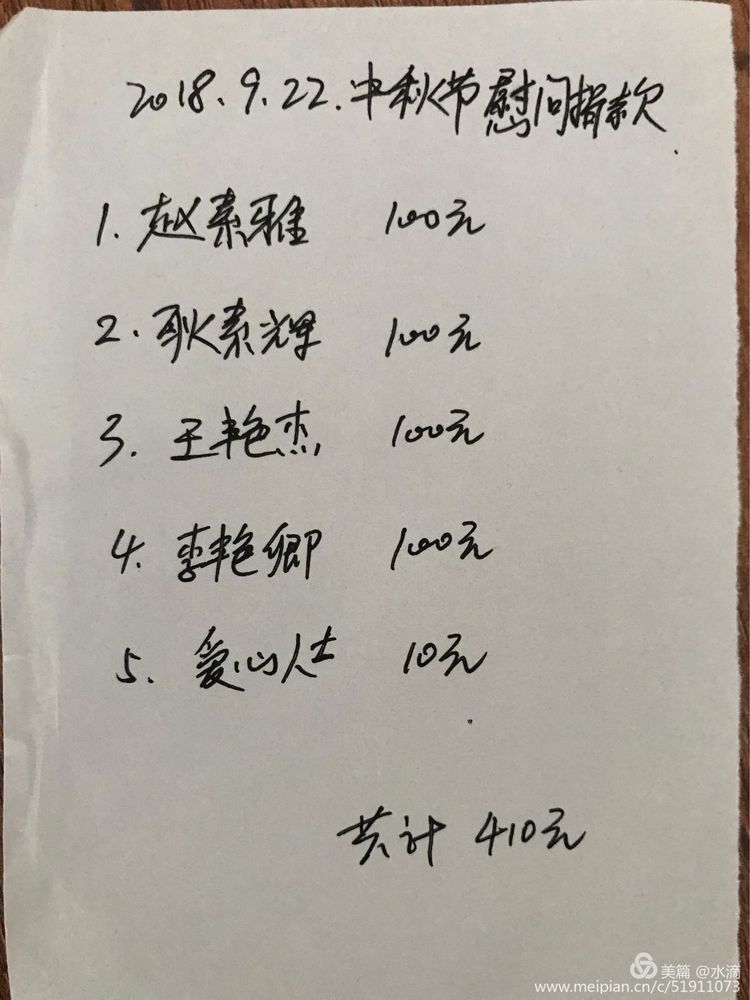 2018.9.22.中秋节慰问捐款
1. 赵素雅 100元
2. 耿素辉 100元
3. 王艳杰 100元
4. 李艳卿 100元
5. 爱心人士 10元
共计 410元
美篇 @水滴
www.meipian.cn/c/51911073